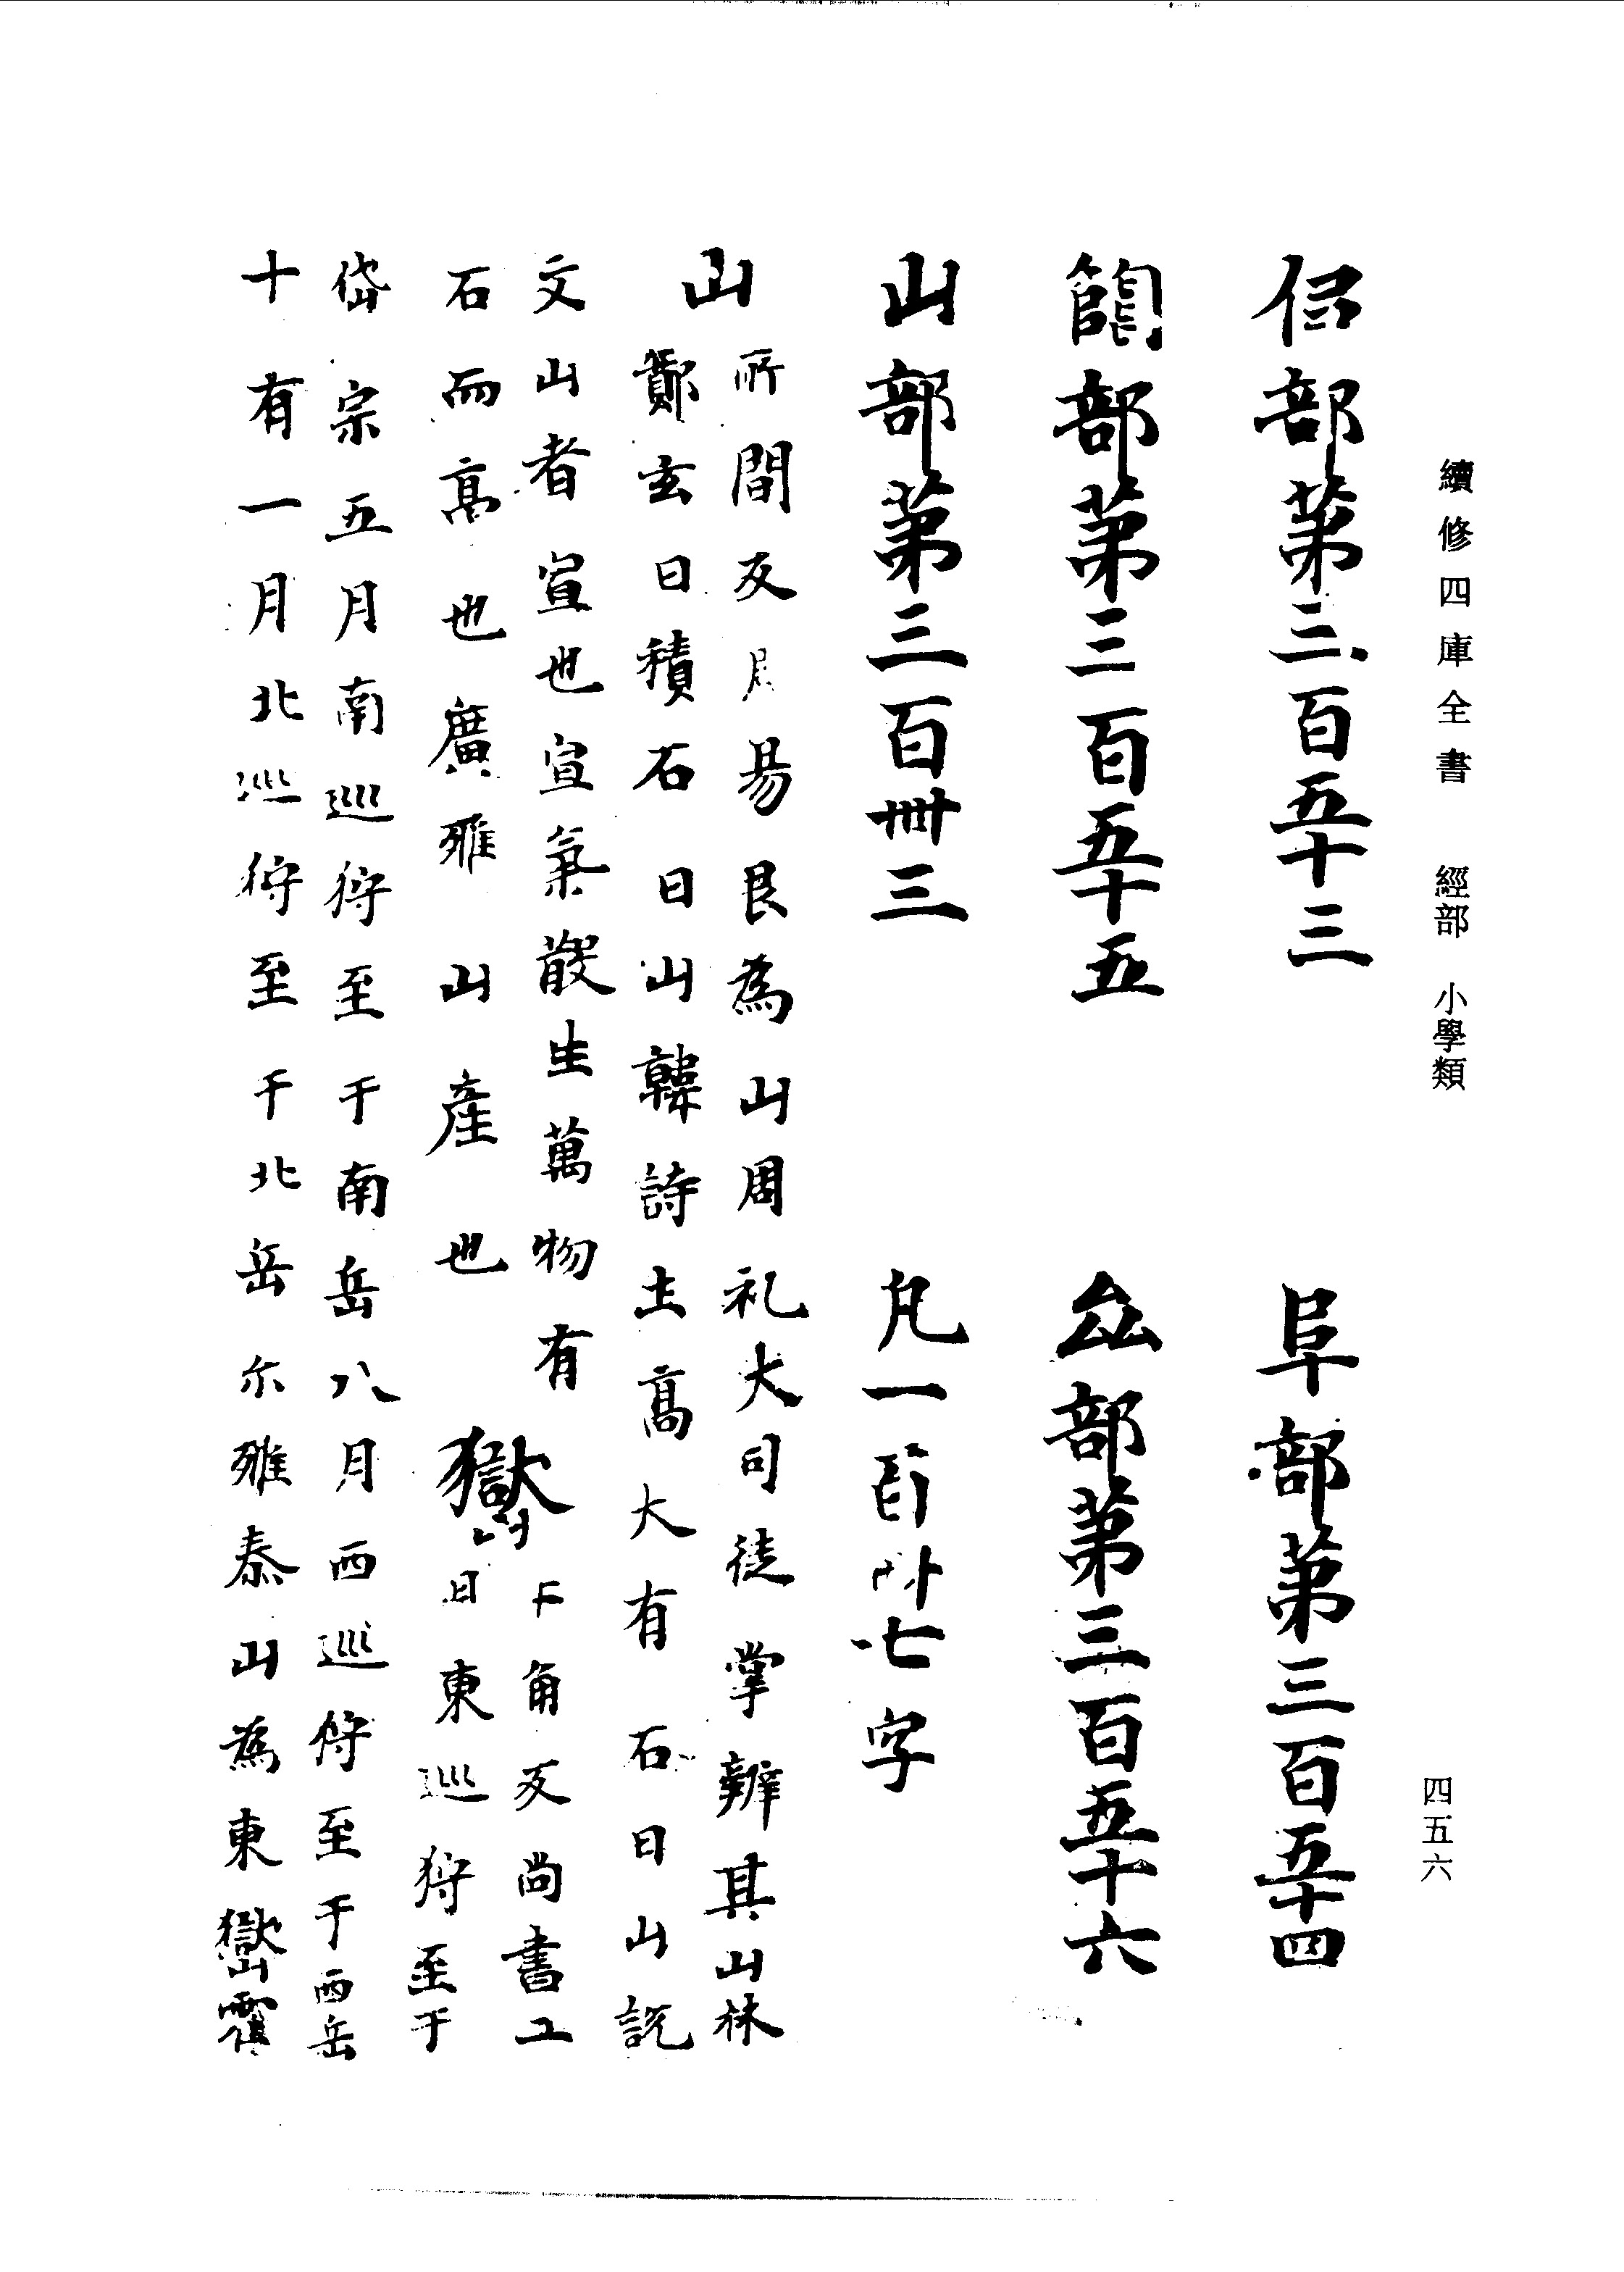 續修四庫全書 經部 小學類
四五六
部第三百五十三 阜部第三百五十四
部第三百五十五 厽部第三百五十六
山部第三百卌三 凡一百卌七字
山 所間反周易艮為山周礼大司徒掌辨其山林
鄭玄曰積石曰山韓詩土高大有石曰山説
文山者宣也宣氣散生萬物有
石而高也廣雅山產也
嶽 牛角反尚書二
月東巡狩至于
岱宗五月南巡狩至于南岳八月西巡狩至于西岳
十有一月北巡狩至于北岳尓雅泰山為東嶽霍